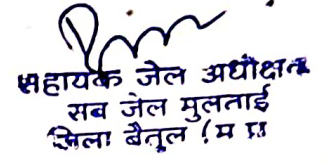 सहायक जेल अधीक्षक
सब जेल मुलताई
जिला बैतूल (म प्र